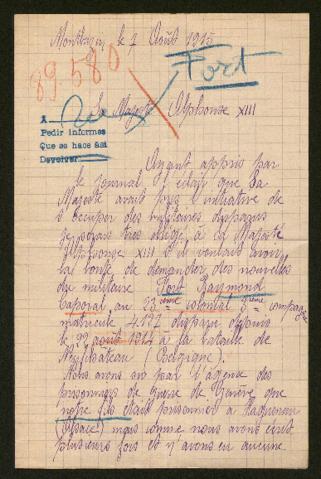 le 7 Août 1915
89.580
Fort
Sa Majesté Alphonse XIII
A
Pedir informes
Que se hace así
Devolver
Ayant appris par
le journal était que Sa
Majesté avait pris l'initiative de
s'occuper des militaires disparus
je serais très obligé à Sa Majesté
Alphonse XIII s'il voulait avoir
la bonté de demander des nouvelles
du militaire Fort Raymond
Caporal au 23 ième colonial 3 ième compagnie
matricule 4127 disparu depuis
le 22 août 1914 à la bataille de
Neufchateau (Belgique).
Nous avons su par l'agence des
prisonniers de guerre de Genève que
notre fils était prisonnier à Haguenau
(Alsace) mais comme nous avons écrit
plusieurs fois et n'avons eu aucune